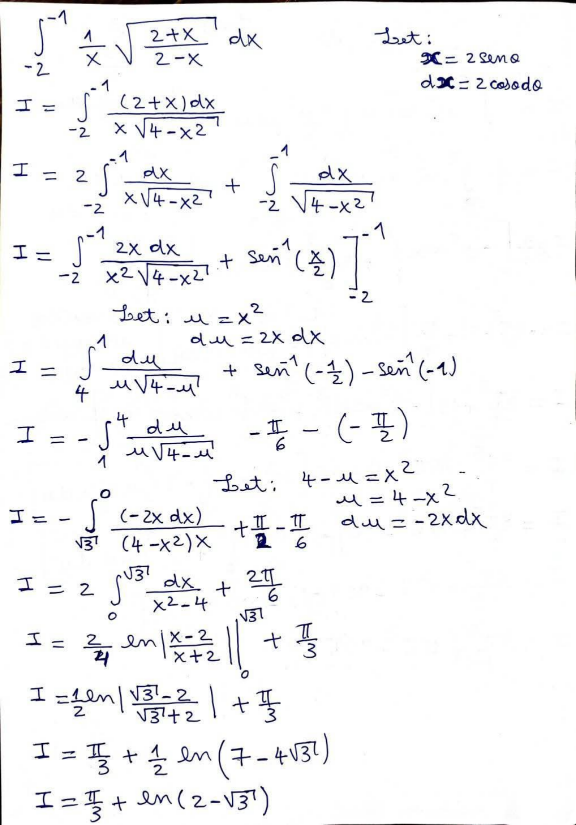 ∫_{-2}^{-1} 1/x √((2+x)/(2-x)) dx
Let:
x = 2senθ
dx = 2cosθdθ
I = ∫_{-2}^{-1} (2+x)dx / (x√(4-x²))
I = 2∫_{-2}^{-1} dx / (x√(4-x²)) + ∫_{-2}^{-1} dx / √(4-x²)
I = ∫_{-2}^{-1} 2x dx / (x²√(4-x²)) + sen⁻¹(x/2)]_{-2}^{-1}
Let: u = x²
du = 2x dx
I = ∫_{4}^{1} du / (u√(4-u)) + sen⁻¹(-1/2) - sen⁻¹(-1)
I = -∫_{1}^{4} du / (u√(4-u)) - π/6 - (-π/2)
Let: 4-u = x²
u = 4-x²
du = -2xdx
I = -∫_{√3}^{0} (-2x dx) / ((4-x²)x) + π/2 - π/6
I = 2∫_{0}^{√3} dx / (x²-4) + 2π/6
I = 2/4 ln|(x-2)/(x+2)||_{0}^{√3} + π/3
I = 1/2 ln|(√3-2)/(√3+2)| + π/3
I = π/3 + 1/2 ln(7-4√3)
I = π/3 + ln(2-√3)